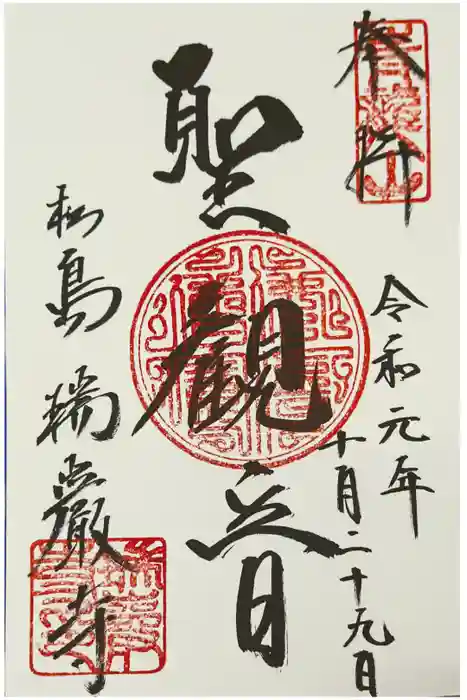 奉拝
令和元年
十月二十九日
聖観音
松島 瑞巌寺